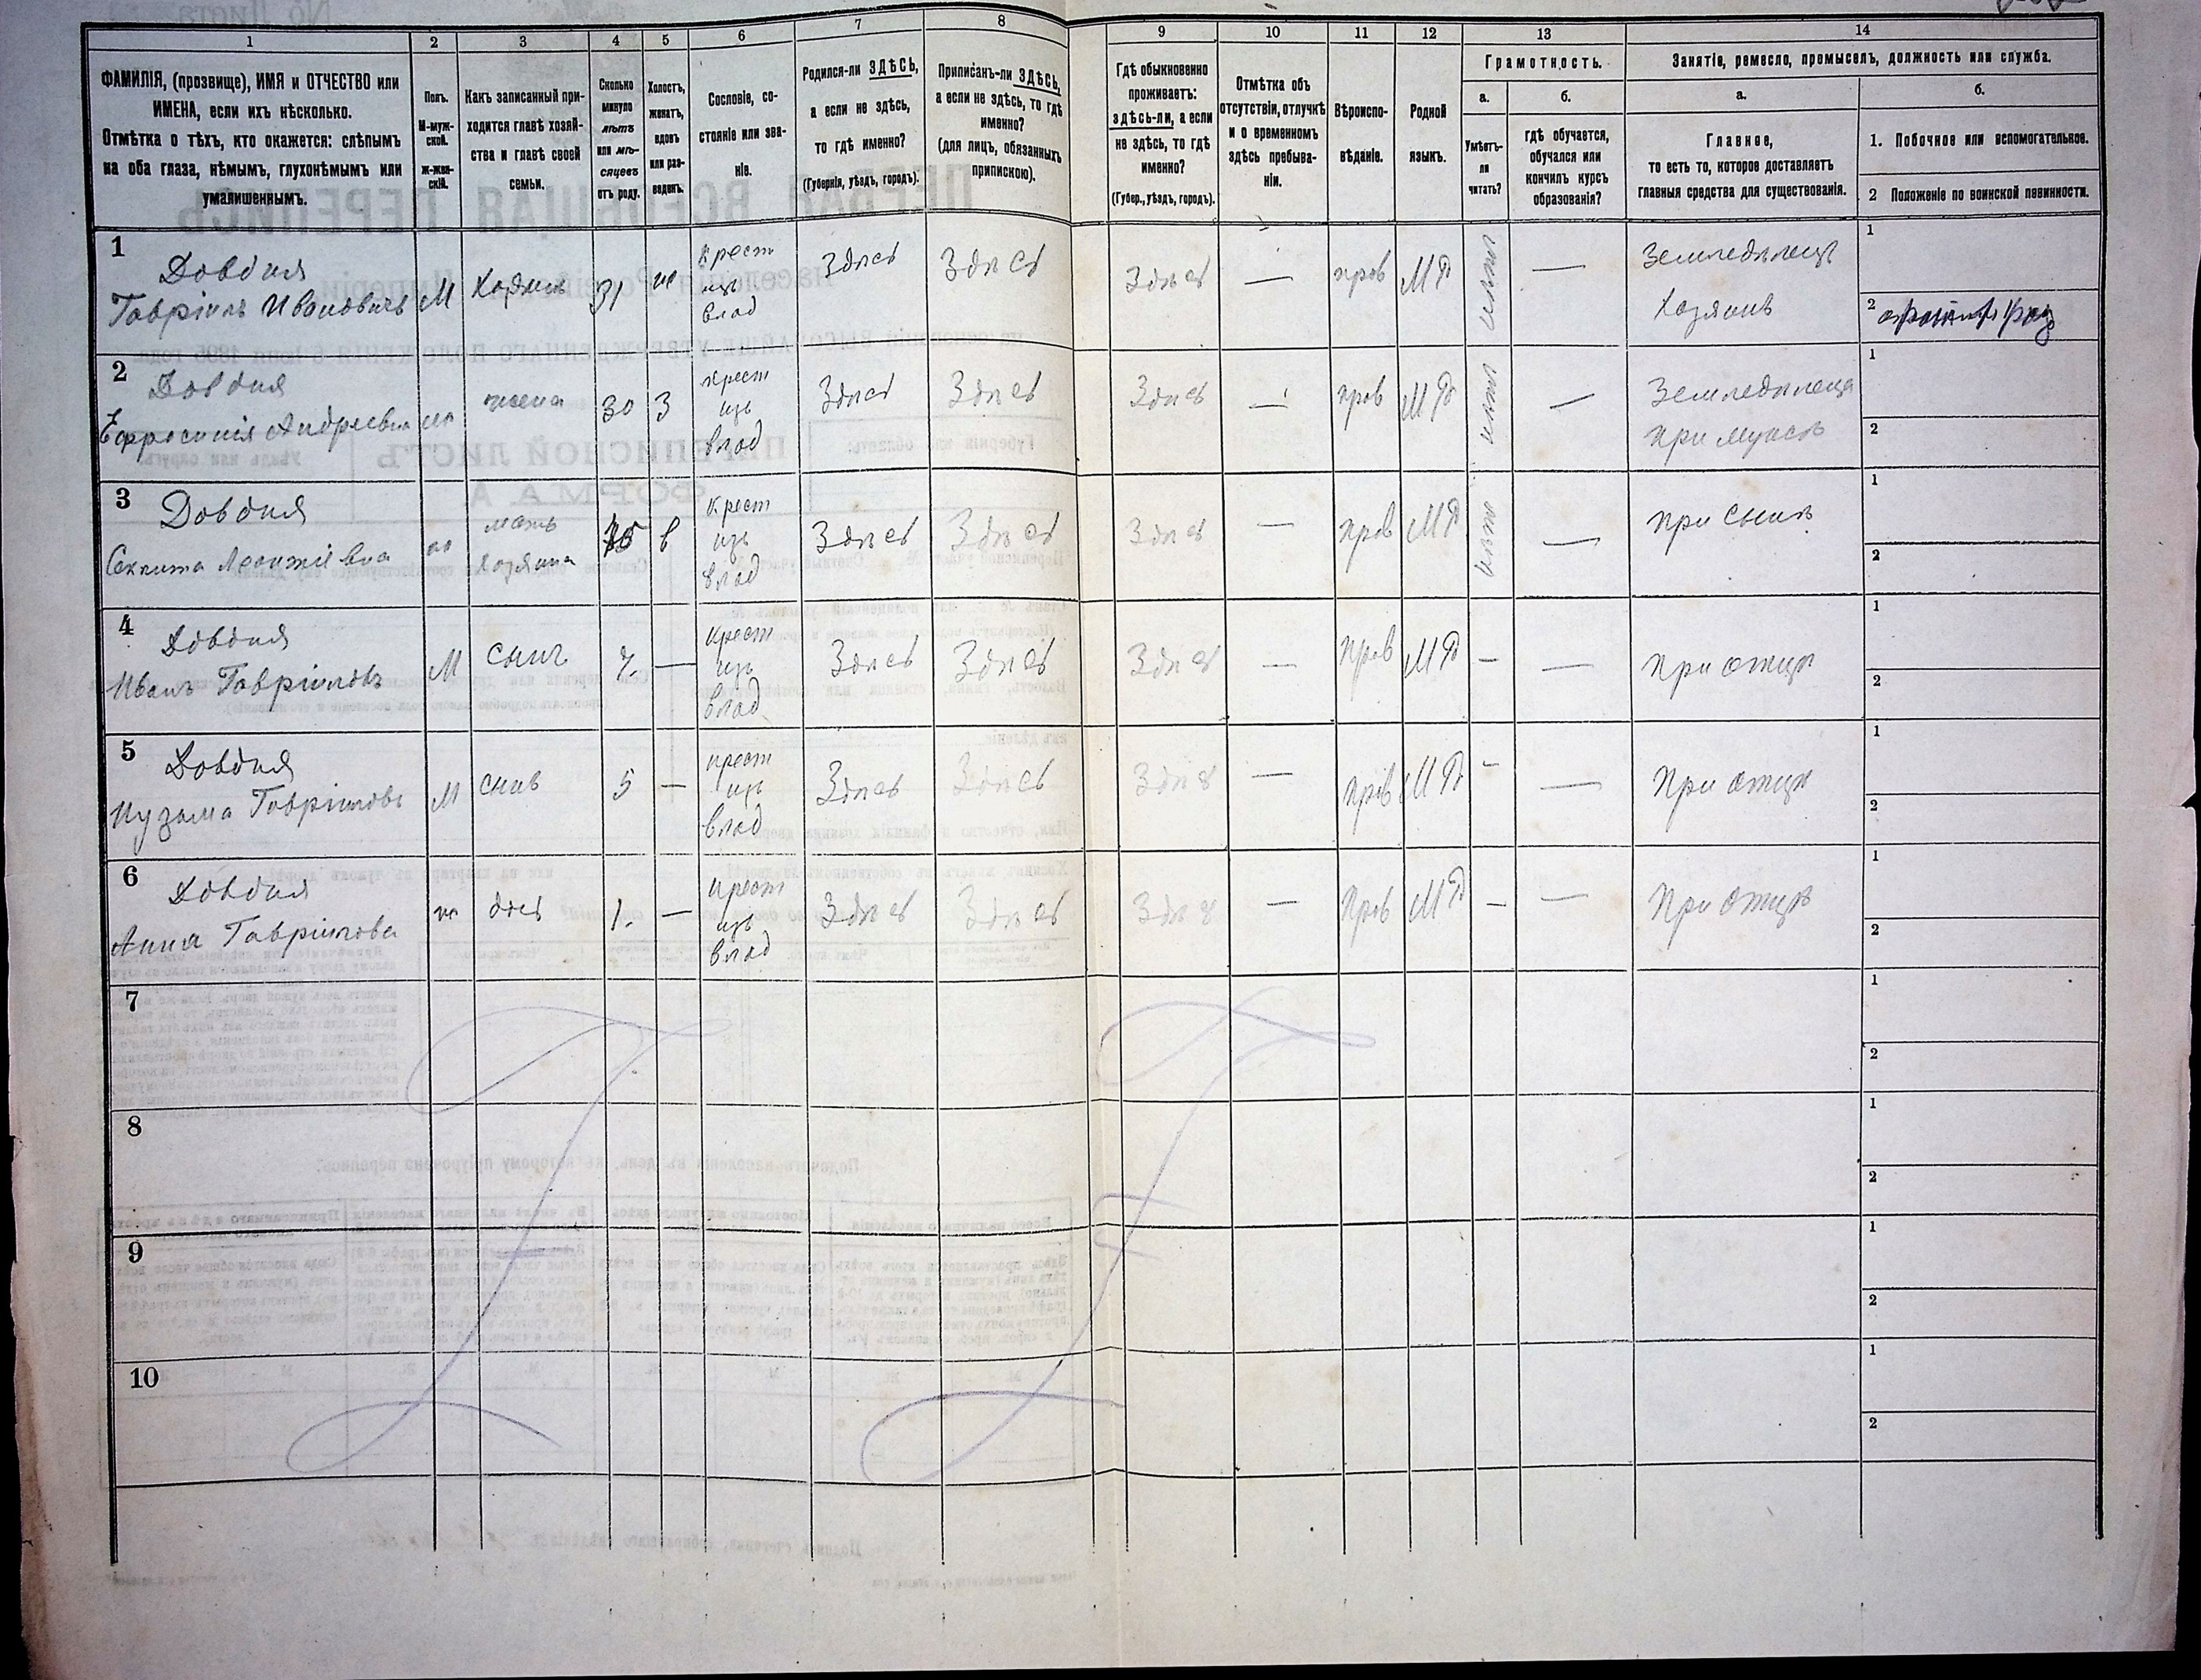 1 2 3 4 5 6 7 8 9 10 11 12 13 14
ФАМИЛІЯ, (прозвище), ИМЯ и ОТЧЕСТВО или
ИМЕНА, если ихъ нѣсколько.
Отмѣтка о тѣхъ, кто окажется: слѣпымъ
на оба глаза, нѣмымъ, глухонѣмымъ или
умалишеннымъ.
Полъ.
М-муж-
ской.
ж-жен-
скій.
Какъ записанный при-
ходится главѣ хозяй-
ства и главѣ своей
семьи.
Сколько
минуло
лѣтъ
или мѣ-
сяцевъ
отъ роду.
Холостъ,
женатъ,
вдовъ
или раз-
веденъ.
Сословіе, со-
стояніе или зва-
ніе.
Родился-ли ЗДѢСЬ,
а если не здѣсь,
то гдѣ именно?
(Губернія, уѣздъ, городъ).
Приписанъ-ли ЗДѢСЬ,
а если не здѣсь, то гдѣ
именно?
(для лицъ, обязанныхъ
припискою).
Гдѣ обыкновенно
проживаетъ:
здѣсь-ли, а если
не здѣсь, то гдѣ
именно?
(Губер., уѣздъ, городъ).
Отмѣтка объ
отсутствіи, отлучкѣ
и о временномъ
здѣсь пребыва-
ніи.
Вѣроиспо-
вѣданіе.
Родной
языкъ.
Грамотность.
а.
Умѣетъ-
ли
читать?
б.
гдѣ обучается,
обучался или
кончилъ курсъ
образованія?
Занятіе, ремесло, промыселъ, должность или служба.
а.
Главное,
то есть то, которое доставляетъ
главныя средства для существованія.
б.
1. Побочное или вспомогательное.
2 Положеніе по воинской повинности.
1 Довбия
Гавріилъ Ивановичъ
М
31
крест
изъ
влад
Здѣсь
Здѣсь
Здѣсь
—
прав
МР
—
Земледѣлецъ
Хозяинъ
1
2
2 Довбия
Ефросинія Андреевна
жена
30
З
крест
изъ
влад
Здѣсь
Здѣсь
Здѣсь
—
прав
МР
—
Земледѣлеца
при мужѣ
1
2
3 Довбия
мать
хозяина
в
крест
изъ
влад
Здѣсь
Здѣсь
Здѣсь
—
прав
МР
—
при сынѣ
1
2
4 Довбия
Иванъ Гавріиловъ
М
сынъ
7
—
крест
изъ
влад
Здѣсь
Здѣсь
Здѣсь
—
прав
МР
—
—
при отцѣ
1
2
5 Довбия
Кузьма Гавріиловъ
М
сынъ
5
—
крест
изъ
влад
Здѣсь
Здѣсь
Здѣсь
—
прав
МР
—
—
при отцѣ
1
2
6 Довбия
Анна Гавріилова
дочь
1
—
крест
изъ
влад
Здѣсь
Здѣсь
Здѣсь
—
прав
МР
—
—
при отцѣ
1
2
7
1
2
8
1
2
9
1
2
10
1
2